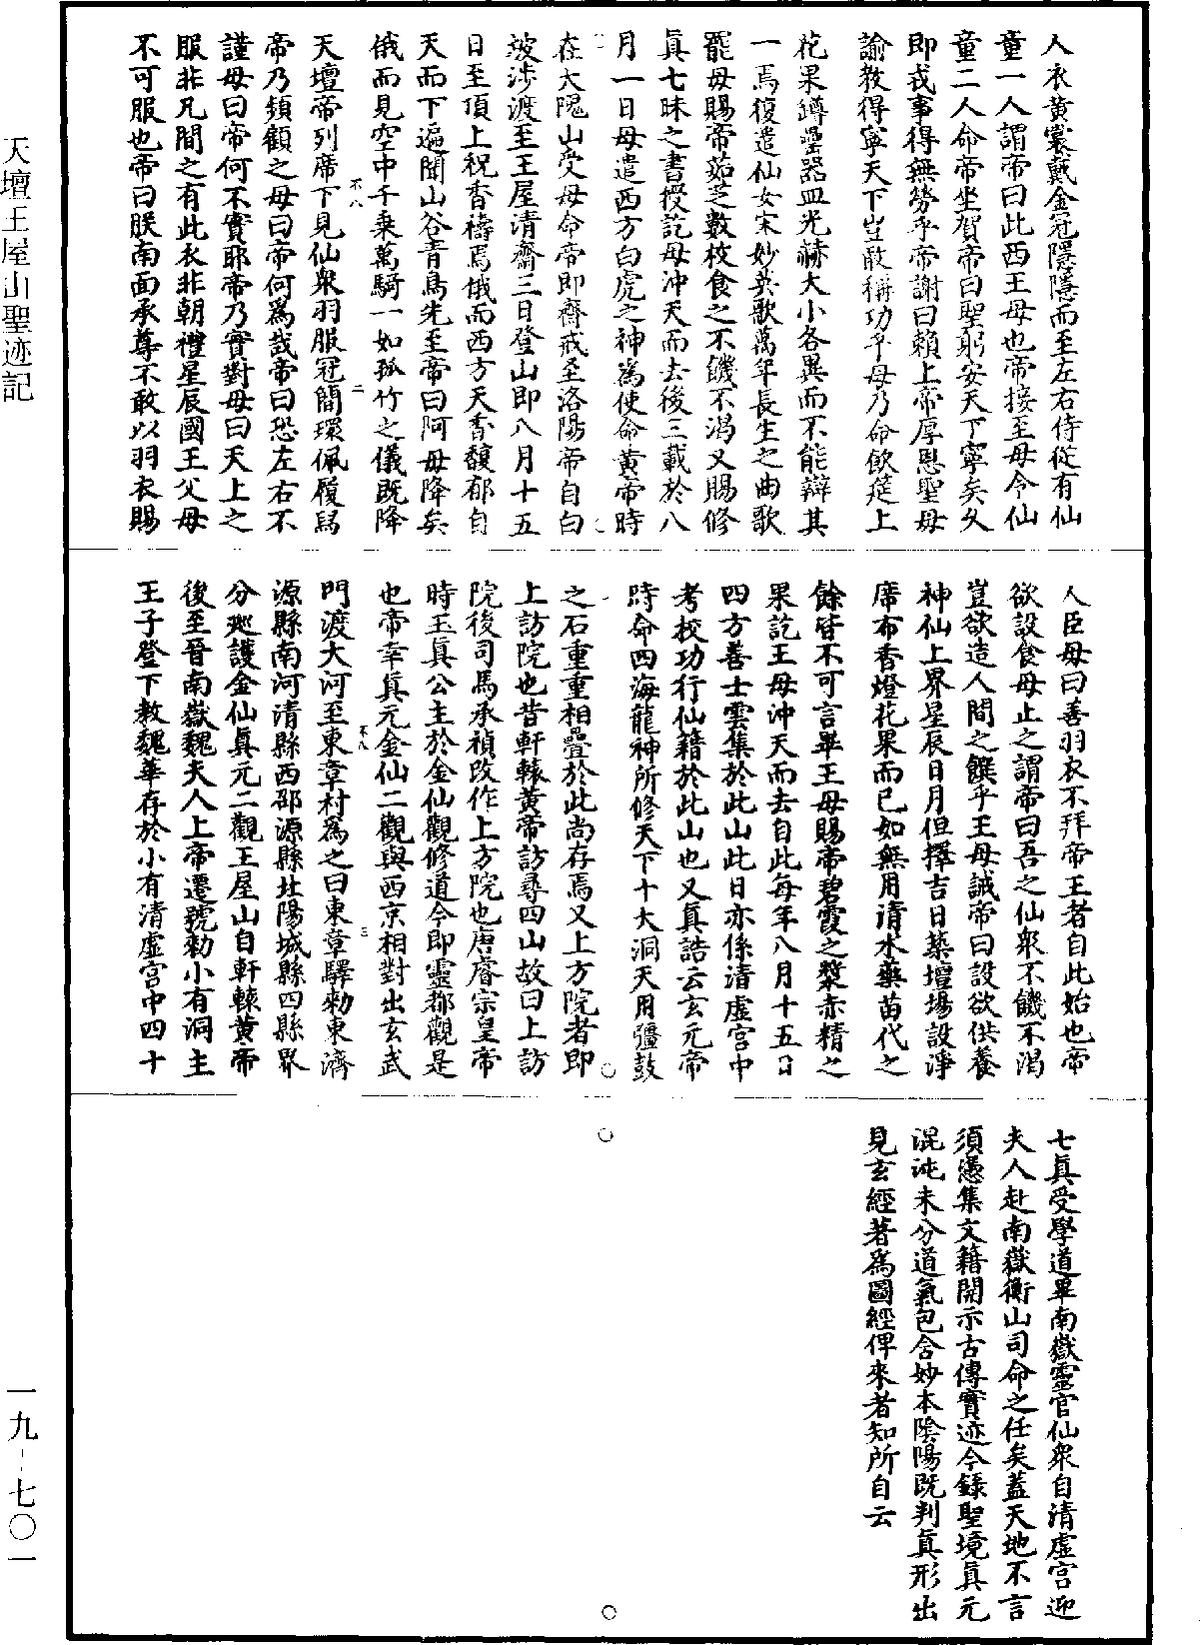 人衣黃裳戴金冠隱隱而至左右侍從有仙
童一人謂帝曰此西王母也帝接至母令仙
童二人命帝坐賀帝曰聖躬安天下寧矣久
即戎事得無勞乎帝謝曰賴上帝厚恩聖母
諭教得寧天下豈敢稱功乎母乃命飲筵上
花果罇罍器皿光赫大小各異而不能辯其
一焉復遣仙女宋妙英歌萬年長生之曲歌
罷母賜帝茹芝數枚食之不饑不渴又賜修
眞七昧之書授訖母沖天而去後三載於八
月一日母遣西方白虎之神為使命黃帝時
在大隗山受母命帝即齋戒至洛陽帝自白
坡涉渡至王屋清齋三日登山即八月十五
日至頂上祝香禱焉俄而西方天香馥郁自
天而下遍聞山谷青鳥先至帝曰阿母降矣
俄而見空中千乘萬騎一如孤竹之儀既降
天壇帝列席下見仙衆羽服冠簡環佩履舄
帝乃頻顧之母曰帝何爲哉帝曰恐左右不
謹母曰帝何不實耶帝乃實對母曰天上之
服非凡間之有此衣非朝禮星辰國王父母
不可服也帝曰朕南面承尊不敢以羽衣賜
人臣母曰善羽衣不拜帝王者自此始也帝
欲設食母止之謂帝曰吾之仙衆不饑不渴
豈欲造人間之饌乎王母誠帝曰設欲供養
神仙上界星辰日月但擇吉日築壇場設淨
席布香燈花果而已如無用清水藥苗代之
餘皆不可言畢王母賜帝碧霞之漿赤精之
果訖王母沖天而去自此每年八月十五日
四方善士雲集於此山此日亦係清虛宮中
考校功行仙籍於此山也又眞誥云玄元帝
時命四海龍神所修天下十大洞天用彊鼓
之石重重相疊於此尚存焉又上方院者即
上訪院也昔軒轅黃帝訪尋四山故曰上訪
院後司馬承禎改作上方院也唐睿宗皇帝
時玉眞公主於金仙觀修道今即靈都觀是
也帝幸眞元金仙二觀與西京相對出玄武
門渡大河至東章村爲之曰東章驛勅東濟
源縣南河清縣西邵源縣北陽城縣四縣界
分巡護金仙眞元二觀王屋山自軒轅黃帝
後至晉南嶽魏夫人上帝遷號勅小有洞主
王子登下教魏華存於小有清虛宮中四十
七眞受學道畢南嶽靈官仙衆自清虛宮迎
夫人赴南嶽衡山司命之任矣蓋天地不言
須憑集文籍開示古傳實迹今錄聖境眞元
混沌未分道氣包含妙本陰陽既判眞形出
見玄經著爲圖經俾來者知所自云
天壇王屋山聖迹記
一九-七〇一
不八
二
不八
三